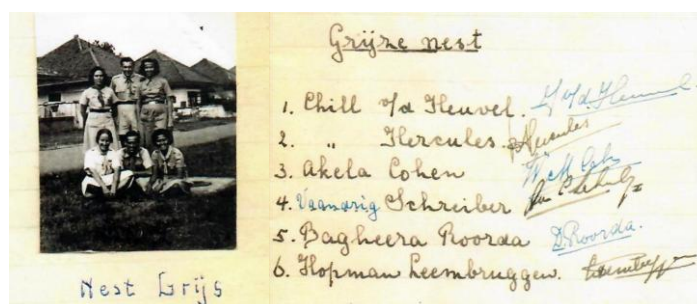 Grijze nest
1. Chill v/d Heuvel. v/d. Heuvel
2. " Hercules. Hercules
3. Akela Cohen
4. Vaandrig Schreiber
5. Bagheera Roorda D. Roorda.
6. Hopman Leembruggen.
Nest Grijs